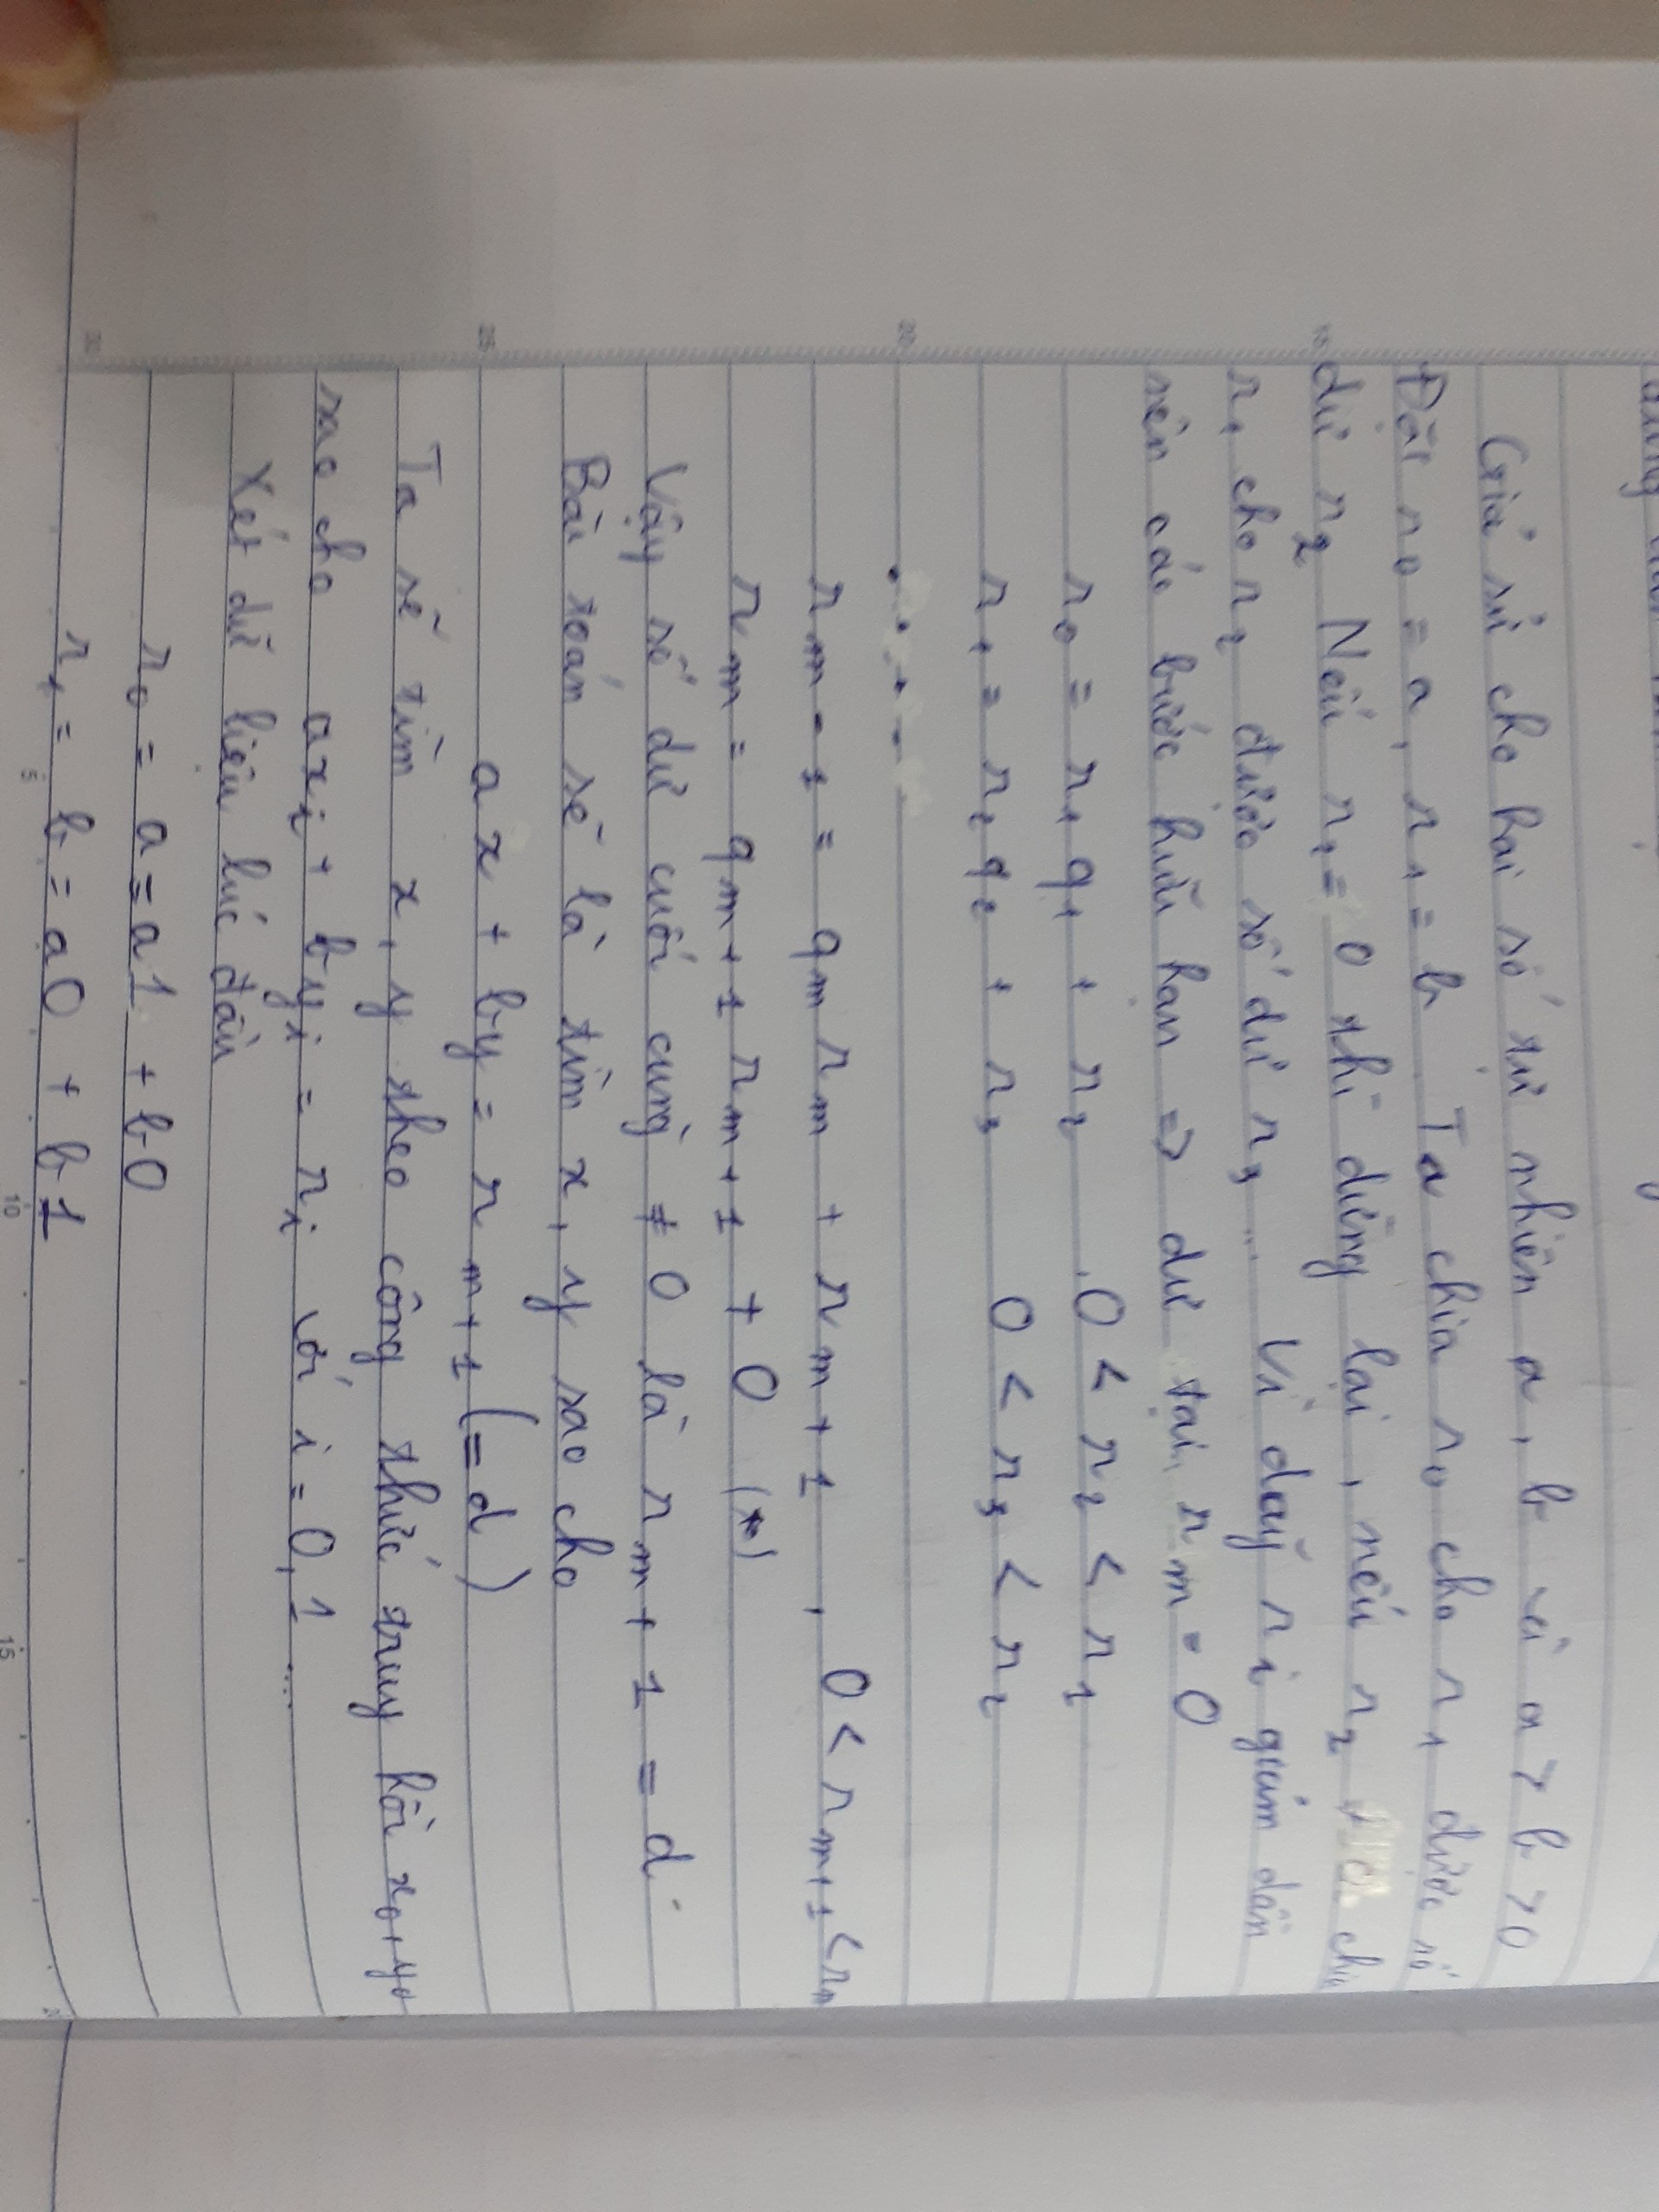 Giả sử cho hai số tự nhiên a, b và a > b > 0
Đặt r0 = a, r1 = b. Ta chia r0 cho r1 được số
dư r2 Nếu r1 = 0 thì dừng lại, nếu r2 chia
r1 cho r2 được số dư r3 ... Vì dãy ri giảm dần
nên các bước hữu hạn => dư tại rm = 0
r0 = r1 q1 + r2 , 0 < r2 < r1
r1 = r2 q2 + r3 0 < r3 < r2
. . . . .
rm-1 = qm rm + rm+1 , 0 < rm+1 < rm
rm = qm+1 rm+1 + 0 (*)
Vậy số dư cuối cùng ≠ 0 là rm+1 = d
Bài toán sẽ là tìm x, y sao cho
ax + by = rm+1 (= d)
Ta sẽ tìm x, y theo công thức truy hồi x0 + y0
sao cho axi + byi = ri với i = 0, 1 ...
Xét dữ liệu lúc đầu
r0 = a = a1 + b0
r1 = b = a0 + b1
10
5
10
15
20
25
30